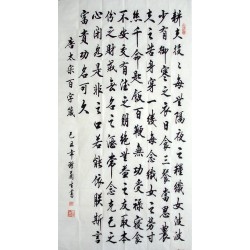 耕夫役役每無隔夜之糧織女波波
少有御寒之衣日食三餐當思農
夫之苦身穿一縷每念織女之勞寸
絲千命匙飯百鞭無功受祿寢食
不安交有德之朋絕無益之友取本
份之財戒無名之酒常念克己之
心閉是非之口若能依朕斯言
富貴功名可久
唐太宗百字箴
己丑年